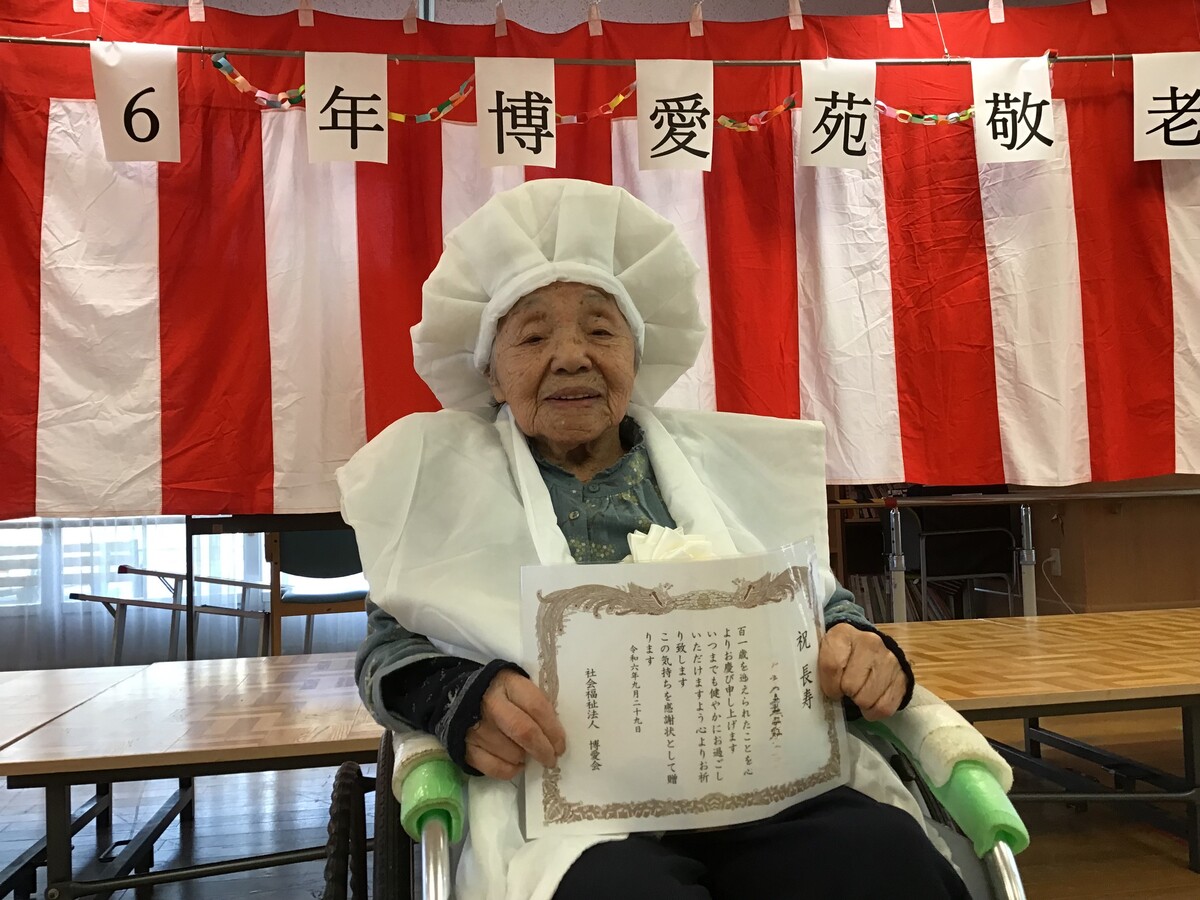 6年博愛苑敬老
祝長寿
百一歳を迎えられたことを心
よりお慶び申し上げます
いつまでも健やかにお過ごし
いただけますよう心よりお祈
り致します
この気持ちを感謝状として贈
ります
令和六年九月二十九日
社会福祉法人 博愛会